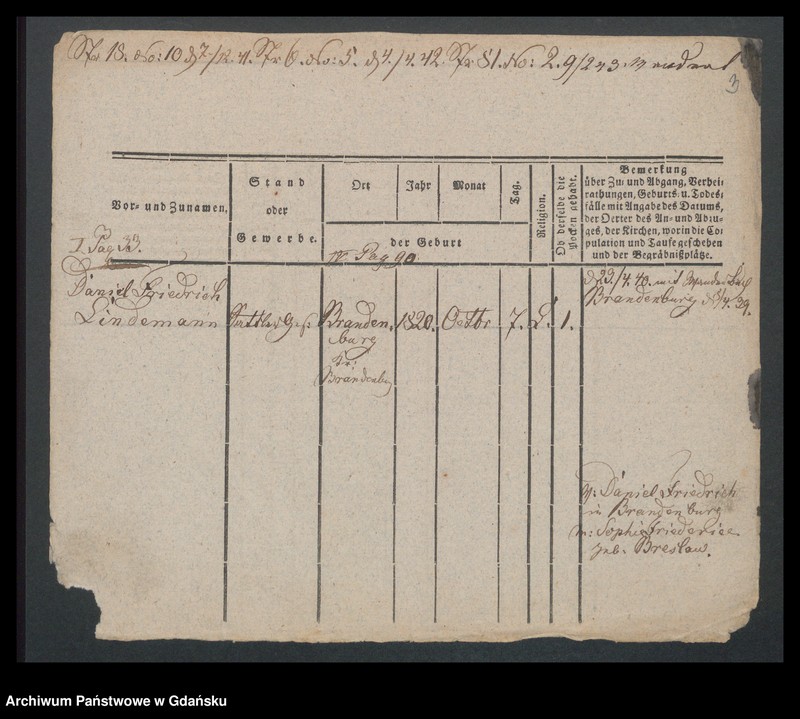 18. No: 10 6. No: 5. 4./4. 42. 81. No: 2. 9/2 43.
3
Vor- und Zunamen.
Stand
oder
Gewerbe.
Ort
Jahr
Monat
Tag.
der Geburt
Religion.
Ob derselbe die
Pocken gehabt.
Bemerkung
über Zu- und Abgang, Verhei-
rathungen, Geburts- u. Todes-
fälle mit Angabe des Datums,
der Oerter des An- und Abzu-
ges, der Kirchen, worin die Co-
pulation und Taufe geschehen
und der Begräbnißplätze.
I Pag 33.
IV Pag 90
Daniel Friedrich
Lindemann
Sattler Ges.
Branden
burg
Kr:
Brandenburg
1820.
Octbr
7.
L.
1.
d 29./4. 40. mit
Brandenburg
v: Daniel Friedrich
in Brandenburg
m: Sophie Friederice
geb. Breslau.
Archiwum Państwowe w Gdańsku